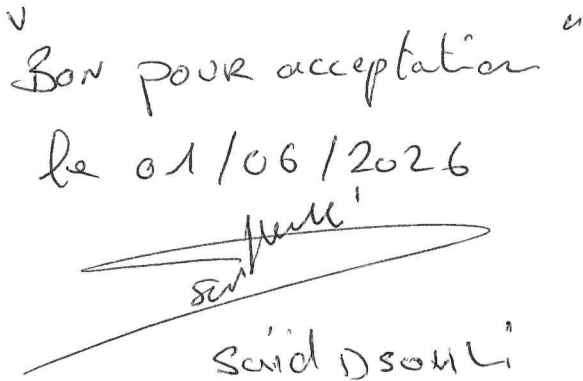 "Bon pour acceptation"
le 01/06/2026
Saïd